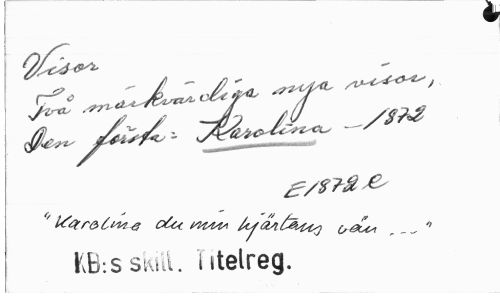 Visor
Två märkvärdiga nya visor,
Den första: Karolina - 1872
E1872 e
"Karolina du min hjärtans vän ..."
KB:s skill. Titelreg.